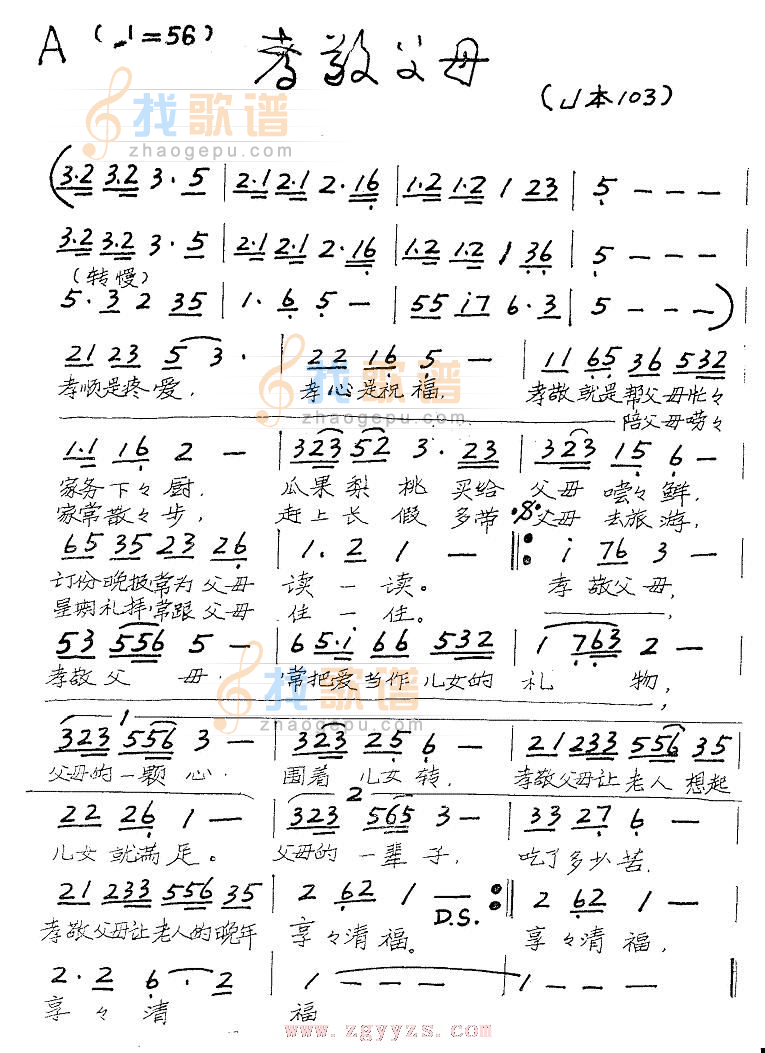 A (♩=56) 孝敬父母
(山本103)
找歌谱
zhaogepu.com
(3·2 3·2 3· 5 | 2·1 2·1 2· 16 | 1·2 1·2 1 23 | 5 - - - |
3·2 3·2 3· 5 | 2·1 2·1 2· 16 | 1·2 1·2 1 36 | 5 - - - |
(转慢)
5· 3 2 35 | 1· 6 5 - | 55 i7 6· 3 | 5 - - - ) |
21 23 5 3· | 22 16 5 - | 11 65 36 532 |
孝顺是疼爱, 孝心是祝福, 孝敬就是帮父母忙々
陪父母唠々
1·1 16 2 - | 323 52 3· 23 | 323 15 6 - |
家务下々厨, 瓜果梨桃买给父母嚐々鲜,
家常散々步, 赶上长假多带父母去旅游,
65 35 23 26 | 1· 2 1 - ‖: i 76 3 - |
订份晚报常为父母读一读。 孝敬父母,
星期礼拜常跟父母住一住。
53 556 5 - | 6 5·i 66 532 | 1 763 2 - |
孝敬父母. 常把爱当作儿女的礼物,
1
323 556 3 - | 323 25 6 - | 21 233 556 35 |
父母的一颗心. 围着儿女转, 孝敬父母让老人想起
2
22 26 1 - | 323 565 3 - | 33 27 6 - |
儿女就满足。 父母的一辈子, 吃了多少苦.
21 233 556 35 | 2 62 1 — :‖ 2 62 1 - |
D.S.
孝敬父母让老人的晚年享々清福。 享々清福,
2· 2 6· 2 | 1 - - - | 1 - - - ‖
享々清福
www.zgyyzs.com